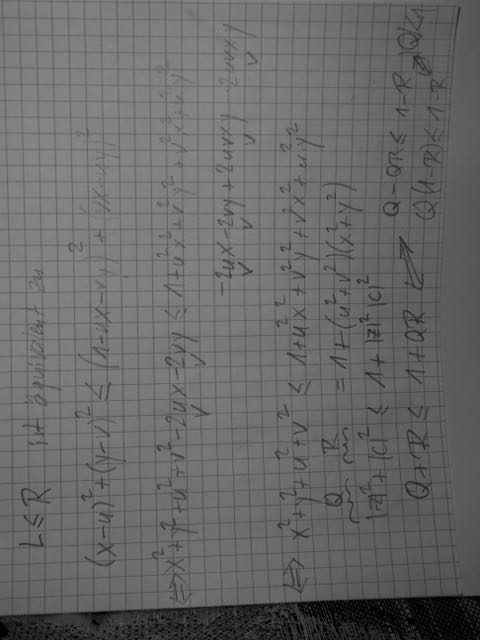 L ≤ R ist äquivalent zu
(x-u)² + (y-v)² ≤ (1-ux-vy)² + (vx-uy)²
⇔ x² + y² + u² + v² - 2ux - 2vy ≤ 1 + u²x² + v²y² + v²x² + u²y²
-2ux - 2vy + 2uvxy - 2uvxy
⇔ x² + y² + u² + v² ≤ 1 + u²x² + v²y² + v²x² + u²y²
Q R = 1 + (u² + v²)(x² + y²)
|z|² + |c|² ≤ 1 + |z|² |c|²
Q + R ≤ 1 + QR ⇔ Q - QR ≤ 1 - R
Q(1-R) ≤ 1-R ⇔ Q ≤ 1